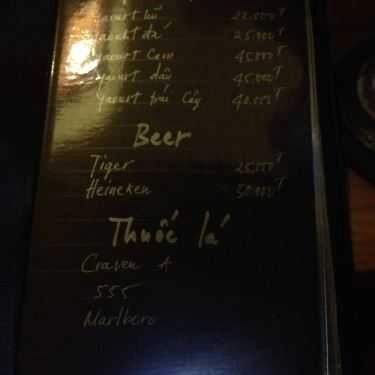 Yaourt hũ 22.000T
Yaourt đá 25.000T
Yaourt Cam 45.000T
Yaourt dâu 45.000T
Yaourt trái Cây 40.000T
Beer
Tiger 25.000T
Heineken 30.000T
Thuốc lá
Craven A
555
Marlboro